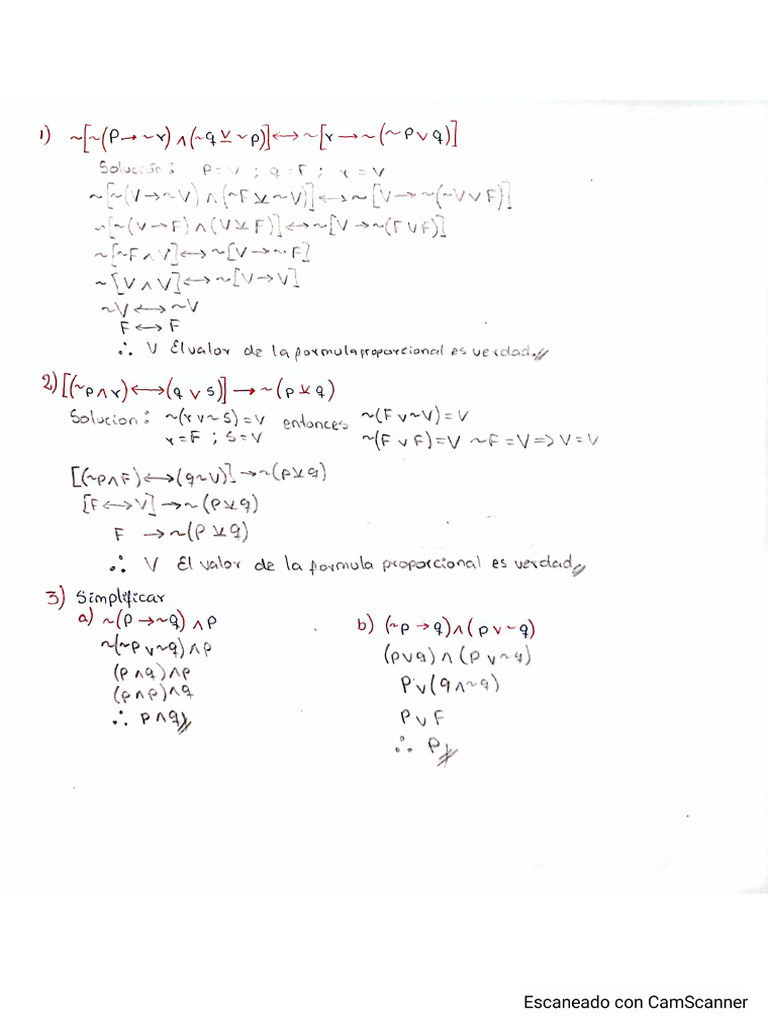 1) ~[~(p→~r)∧(~q⊻~p)]↔~[r→~(~p∨q)]
Solución: p=V ; q=F ; r=V
~[~(V→~V)∧(~F⊻~V)]↔~[V→~(~V∨F)]
~[~(V→F)∧(V⊻F)]↔~[V→~(F∨F)]
~[~F∧V]↔~[V→~F]
~[V∧V]↔~[V→V]
~V↔~V
F↔F
∴ V El valor de la formula proporcional es verdad.//
2) [(~p∧r)↔(q∨s)]→~(p⊻q)
Solucion: ~(r∨~s)=V entonces ~(F∨~V)=V
r=F ; s=V ~(F∨F)=V ~F=V⇒V=V
[(~p∧F)↔(q~V)]→~(p⊻q)
[F↔V]→~(p⊻q)
F →~(p⊻q)
∴ V El valor de la formula proporcional es verdad//
3) Simplificar
a) ~(p→~q)∧p
~(~p∨~q)∧p
(p∧q)∧p
(p∧p)∧q
∴ p∧q//
b) (~p→q)∧(p∨~q)
(p∨q)∧(p∨~q)
p∨(q∧~q)
p∨F
∴ p//
Escaneado con CamScanner